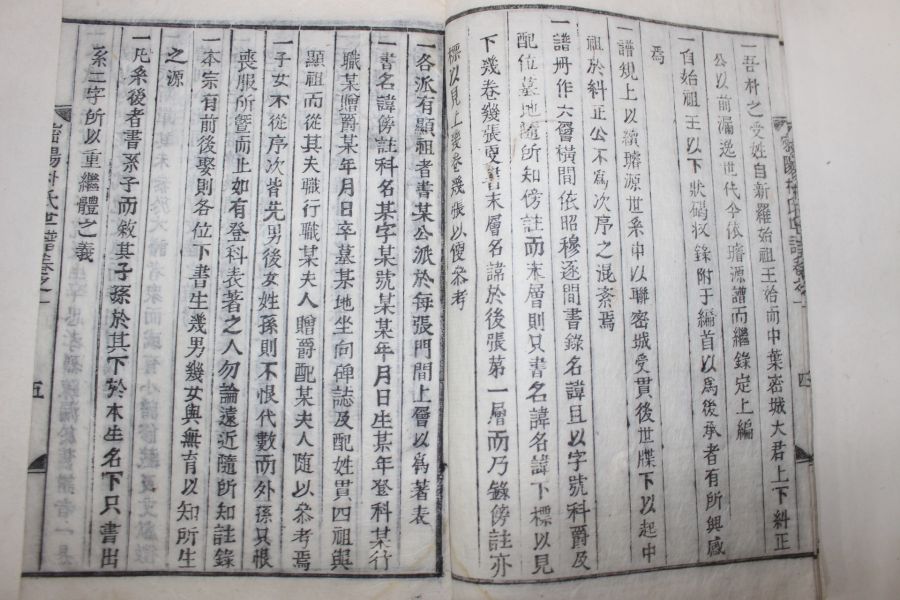 一吾朴之受姓自新羅始祖王洽而中葉密城大君上下糾正
公以前漏逸世代今依璿源譜而繼錄定上編
一自始祖王以下狀碣收錄附于編首以爲後承者有所興感
焉
一譜規上以續璿源世系中以聯密城受貫後世牒下以起中
祖於糾正公不爲次序之混紊焉
一譜冊作六層橫間依昭穆逐間書錄名諱且以字號科爵及
配位墓地隨所知傍註而末層則只書名諱名諱下標以見
下幾卷幾張更書末層名諱於後張第一層而乃錄傍註亦
標以見上幾卷幾張以便參考
一各派有顯祖者書某公派於每張門間上層以爲著表
一書名諱傍註科名某字某號某某年月日生某年登科某行
職某贈爵某年月日卒墓某地坐向碑誌及配姓貫四祖與
顯祖而從其夫職行職某夫人贈爵配某夫人隨以參考焉
一子女不從序次皆先男後女姓孫則不恨代數而外孫只根
喪服所曁而止如有登科表著之人勿論遠近隨所知註錄
一本宗有前後娶則各位下書生幾男幾女與無育以知所生
之源
一凡系後者書孫子而敘其子孫於其下於本生名下只書出
系二字所以重繼體之義
密陽朴氏世譜卷之一
四
密陽朴氏世譜卷之一
五